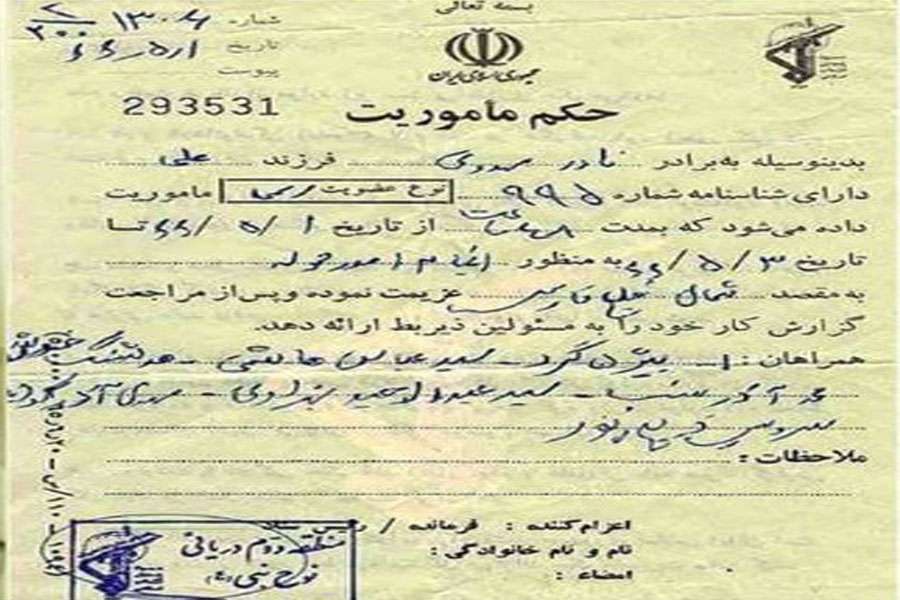 بسمه تعالی
شماره ۱۳۰۶
تاریخ ۶۶/۵/۱
پیوست
جمهوری اسلامی ایران
293531
حکم ماموریت
بدینوسیله به برادر نادر مهدوی فرزند علی
دارای شناسنامه شماره ۹۹۵ نوع عضویت رسمی ماموریت
داده می‌شود که بمدت ۴۸ ساعت از تاریخ ۱/۵/۶۶ تا
تاریخ ۳/۵/۶۶ به منظور انجام امور محوله
به مقصد شمال خلیج فارس عزیمت نموده و پس از مراجعت
گزارش کار خود را به مسئولین ذیربط ارائه دهد.
همراهان : ۱- بیژن گرد - سید عباس هاشمی -
سید عبدالوحید - مهدی
سیروس
ملاحظات :
اعزام‌کننده : فرمانده / رئیس ستاد
نام و نام خانوادگی :
امضاء :
منطقه دوم دریائی
نوح نبی (ع)